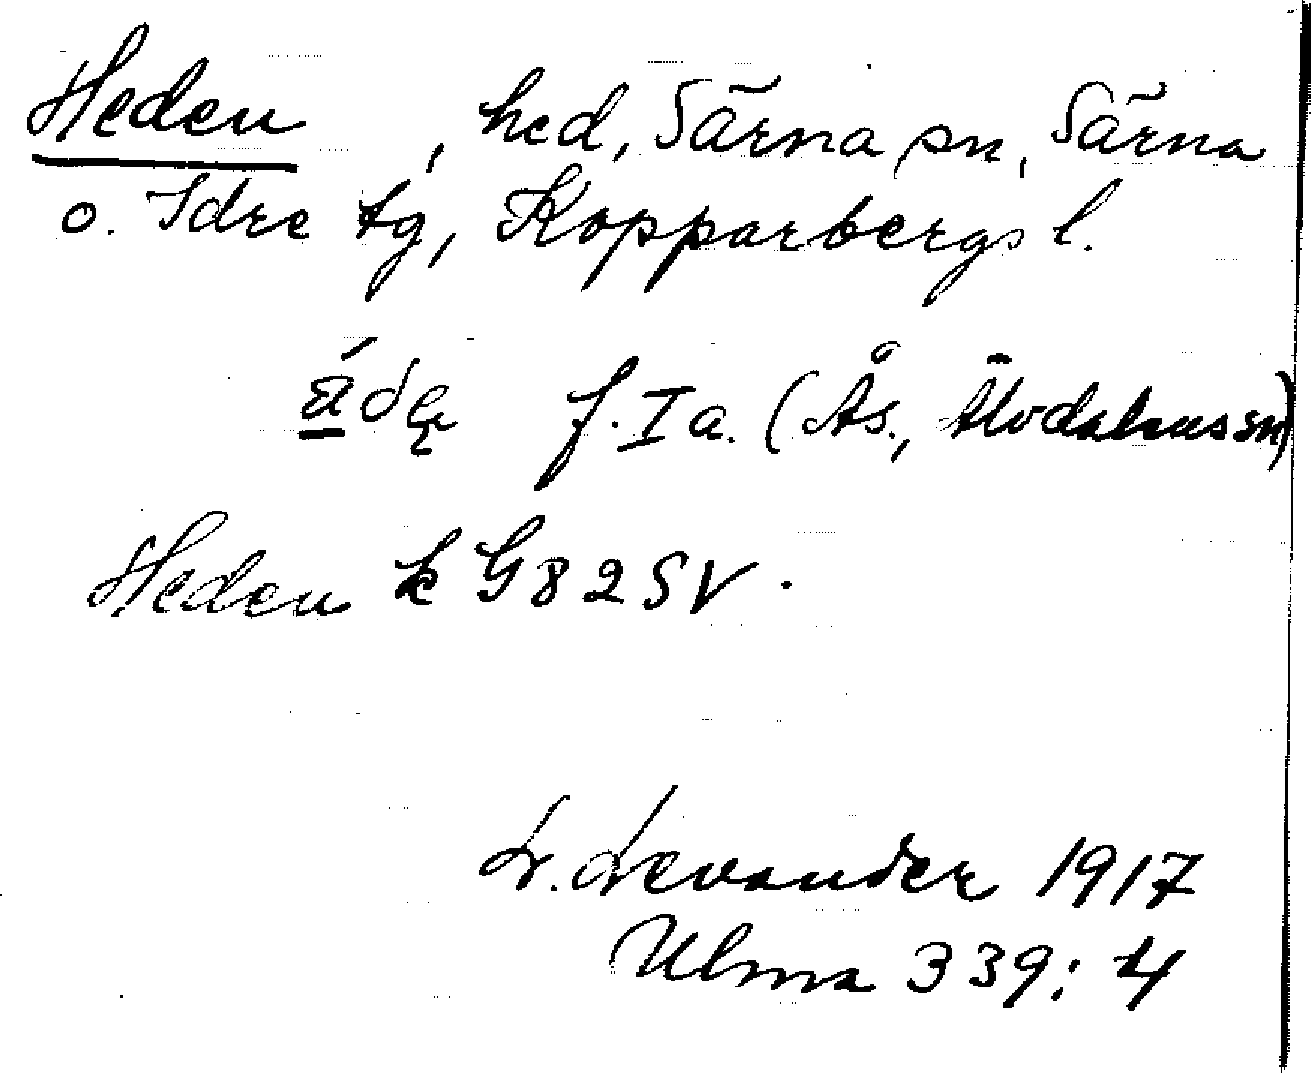 Heden , hed, Särna sn, Särna
o. Idre tg, Kopparbergs l.
f. I a. (Ås., Älvdalens sn)
Heden k G82SV.
L. Levander 1917
Ulma 339:4